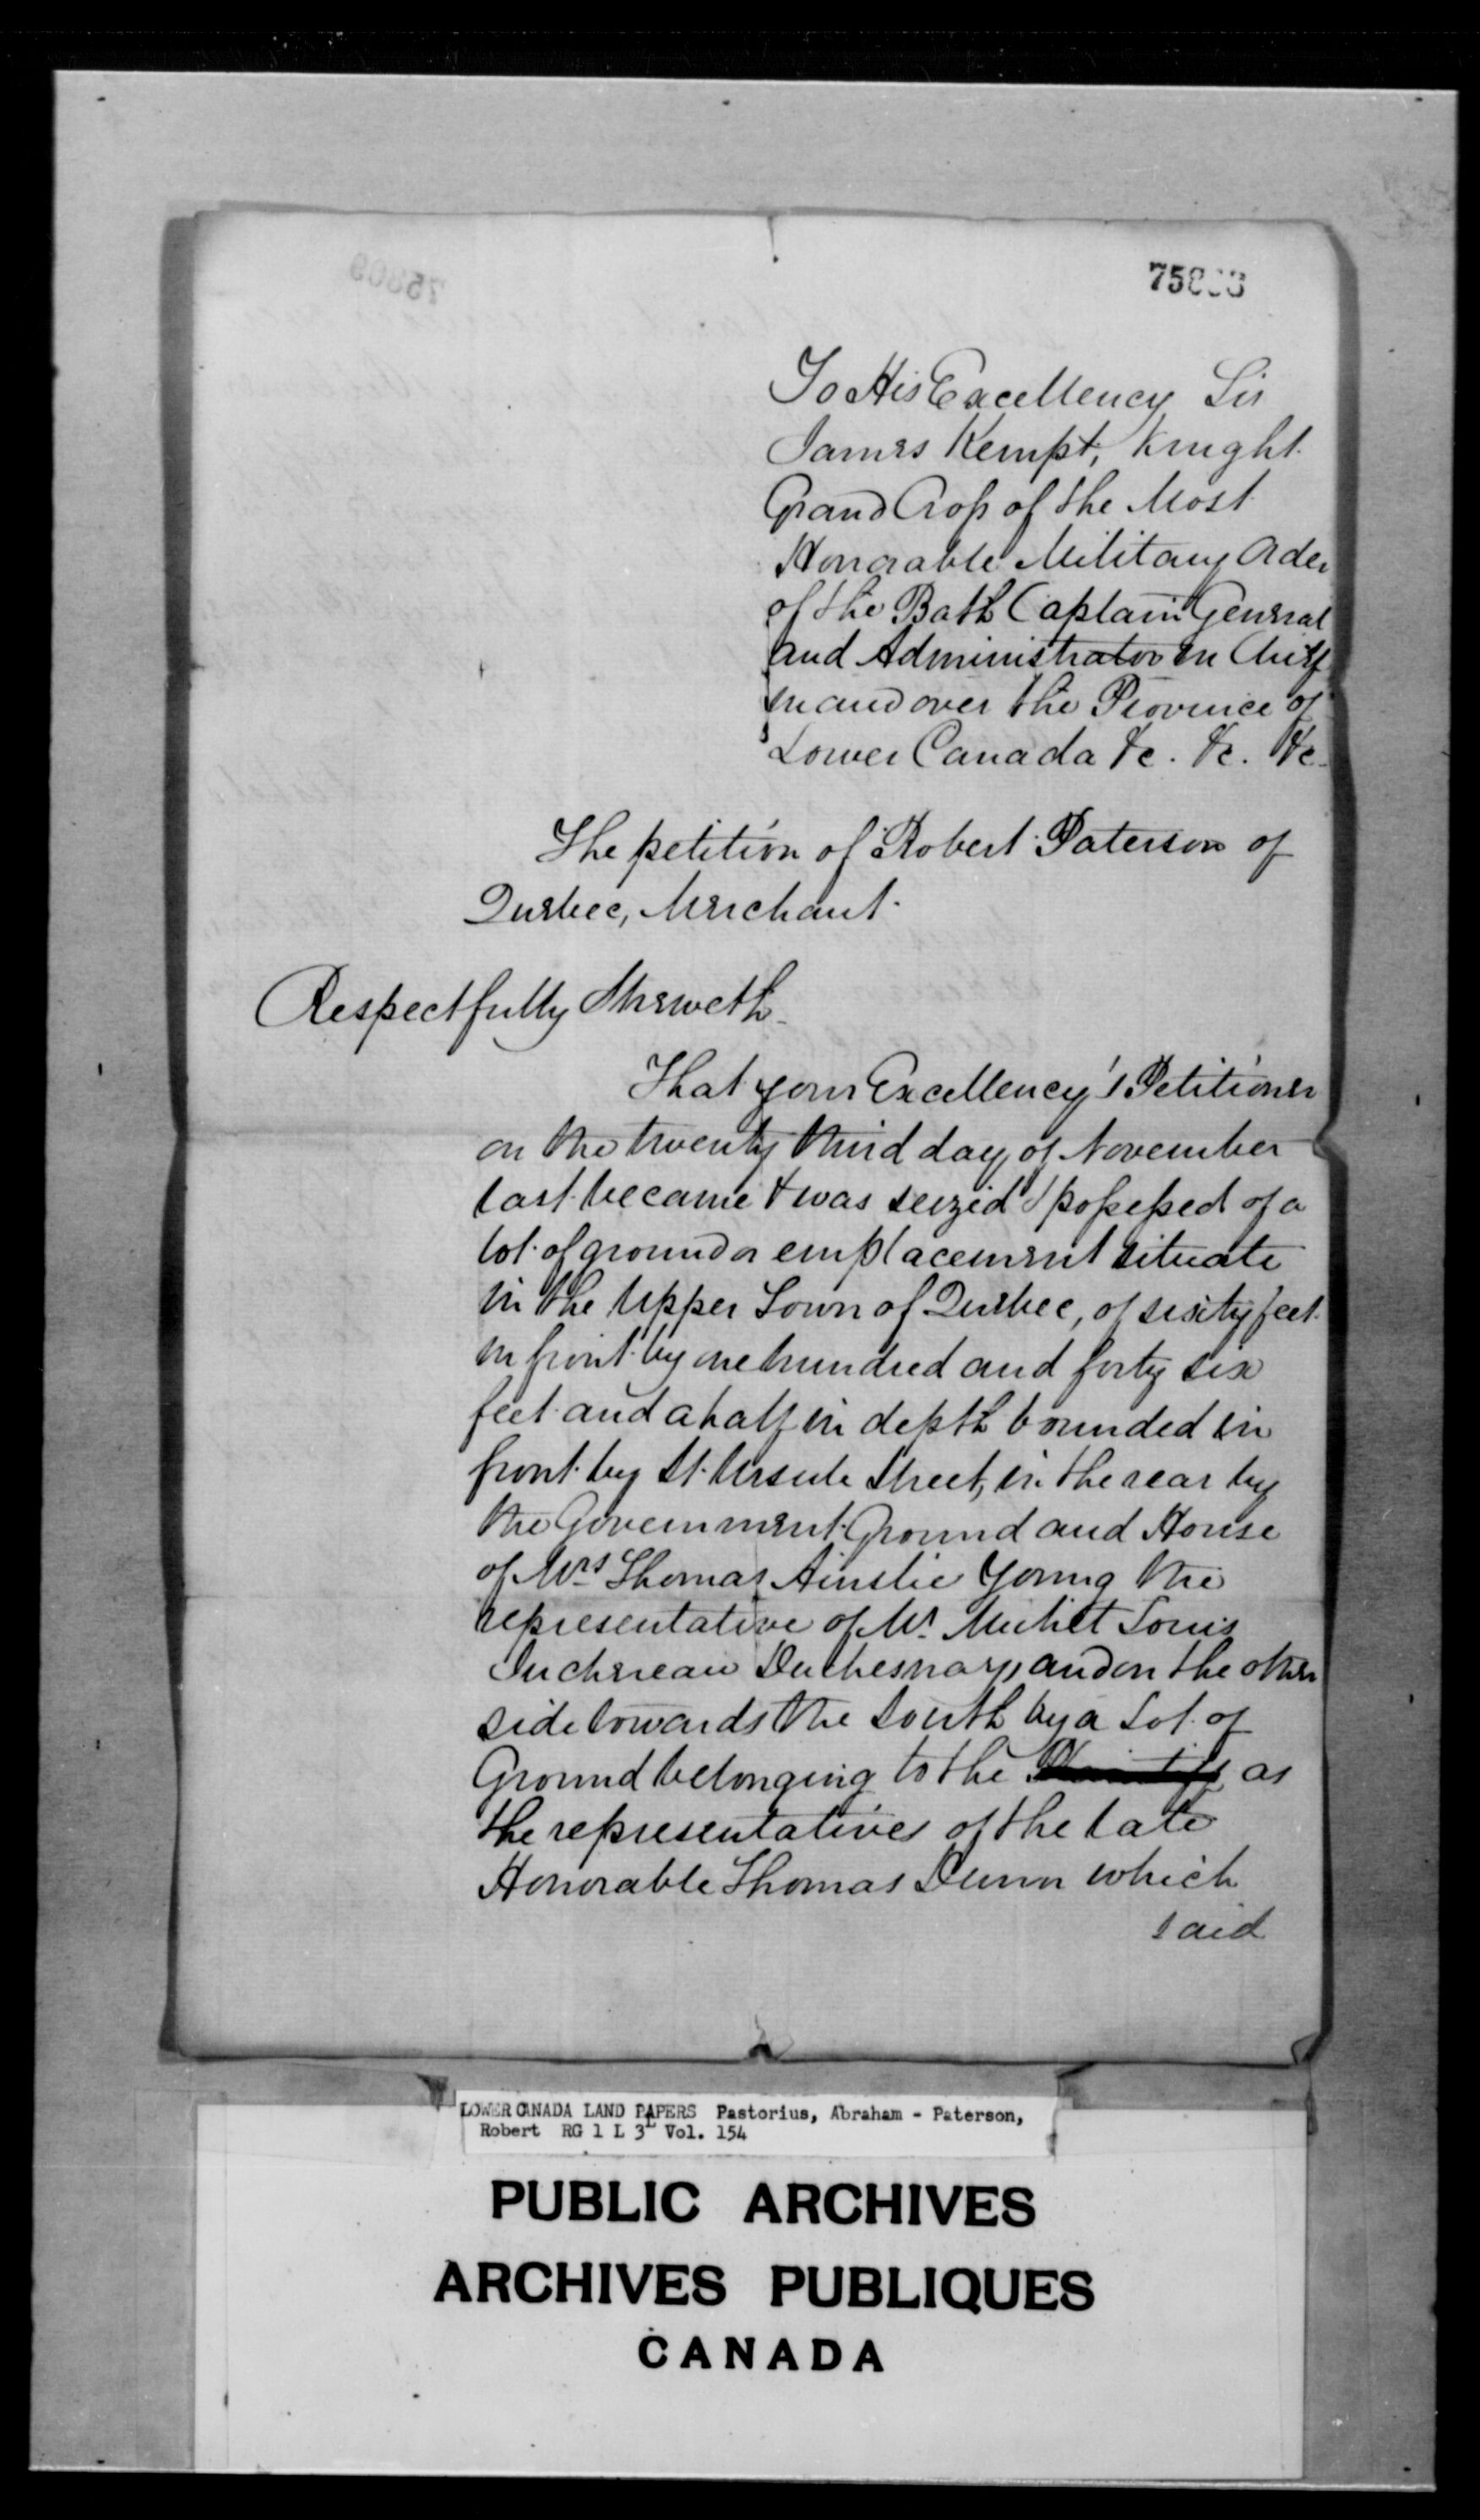 To His Excellency Sir
James Kempt, Knight
Grand Cross of the Most
Honorable Military Order
of the Bath Captain General
and Administrator in Chief
in and over the Province of
Lower Canada &c. &c. &c.
The petition of Robert Paterson of
Quebec, Merchant.
Respectfully Sheweth
That your Excellency's Petitioner
on the twenty third day of November
last became & was seized & possessed of a
lot of ground or emplacement situate
in the Upper Town of Quebec, of sixty feet
in front by one hundred and forty six
feet and a half in depth bounded in
front by St. Ursule Street, in the rear by
the Government Ground and House
of Mrs Thomas Ainslie Young the
representative of Mr. Michel Louis
Juchereau Duchesnay, and on the other
side towards the South by a Lot of
Ground belonging to the as
the representatives of the late
Honorable Thomas Dunn which
said
LOWER CANADA LAND PAPERS Pastorius, Abraham - Paterson,
Robert RG 1 L 3L Vol. 154
PUBLIC ARCHIVES
ARCHIVES PUBLIQUES
CANADA